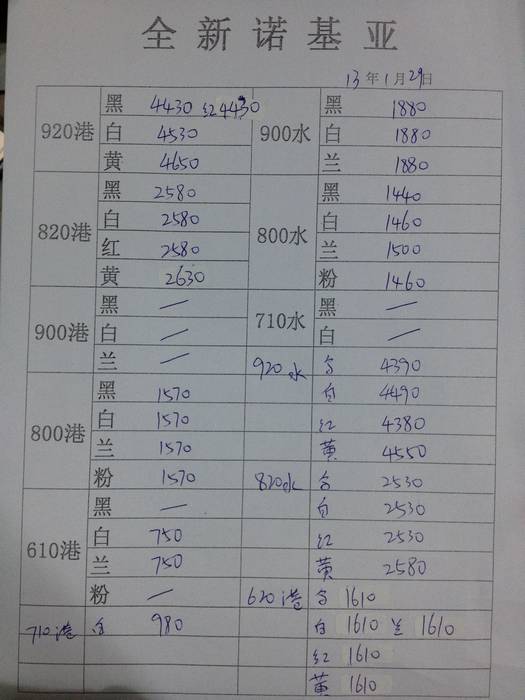 全新诺基亚
13年1月29日
920港 黑 4430 红4430 900水 黑 1880
白 4530 白 1880
黄 4650 兰 1880
820港 黑 2580 800水 黑 1440
白 2580 白 1460
红 2580 兰 1500
黄 2630 粉 1460
900港 黑 — 710水 黑 —
白 — 白 —
兰 — 920水 4390
800港 黑 1570 白 4490
白 1570 红 4380
兰 1570 黄 4550
粉 1570 820水 2530
610港 黑 — 白 2530
白 750 红 2530
兰 750 黄 2580
粉 — 620港 1610
710港 980 白 1610 兰 1610
红 1610
黄 1610